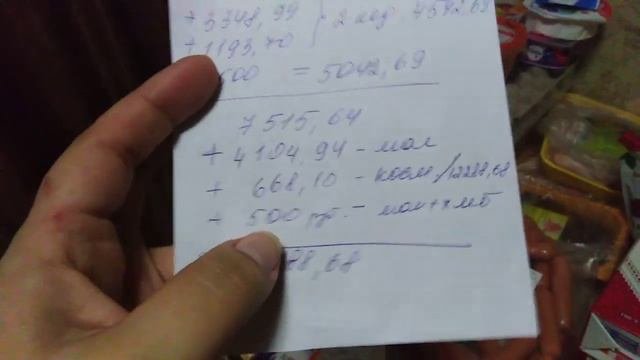 + 3348,99 } 2 4542,69
+ 1193,70
500 = 5042,69
7515,64
+ 4104,94 - мол
+ 668,10 - косм /12288,68
+ 500 руб. - мол + хлеб
88,68